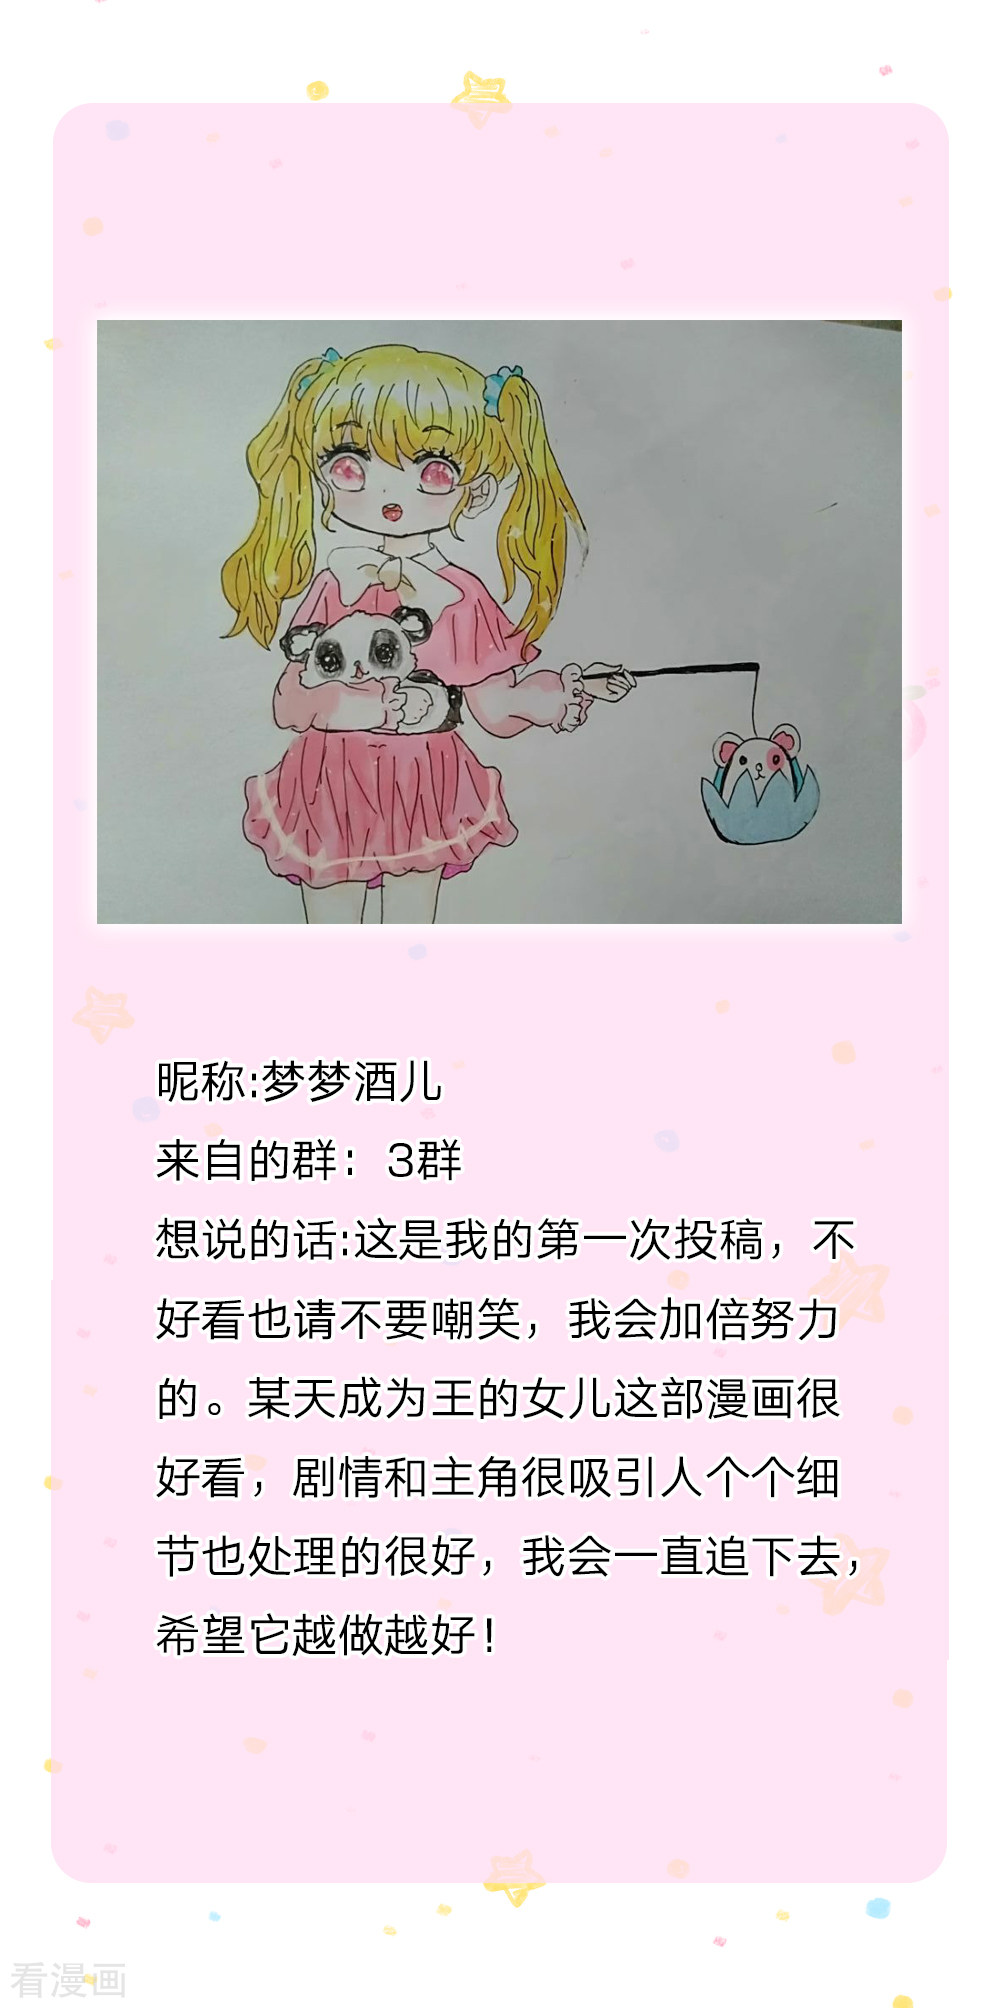 昵称:梦梦酒儿
来自的群：3群
想说的话:这是我的第一次投稿，不
好看也请不要嘲笑，我会加倍努力
的。某天成为王的女儿这部漫画很
好看，剧情和主角很吸引人个个细
节也处理的很好，我会一直追下去，
希望它越做越好！
看漫画